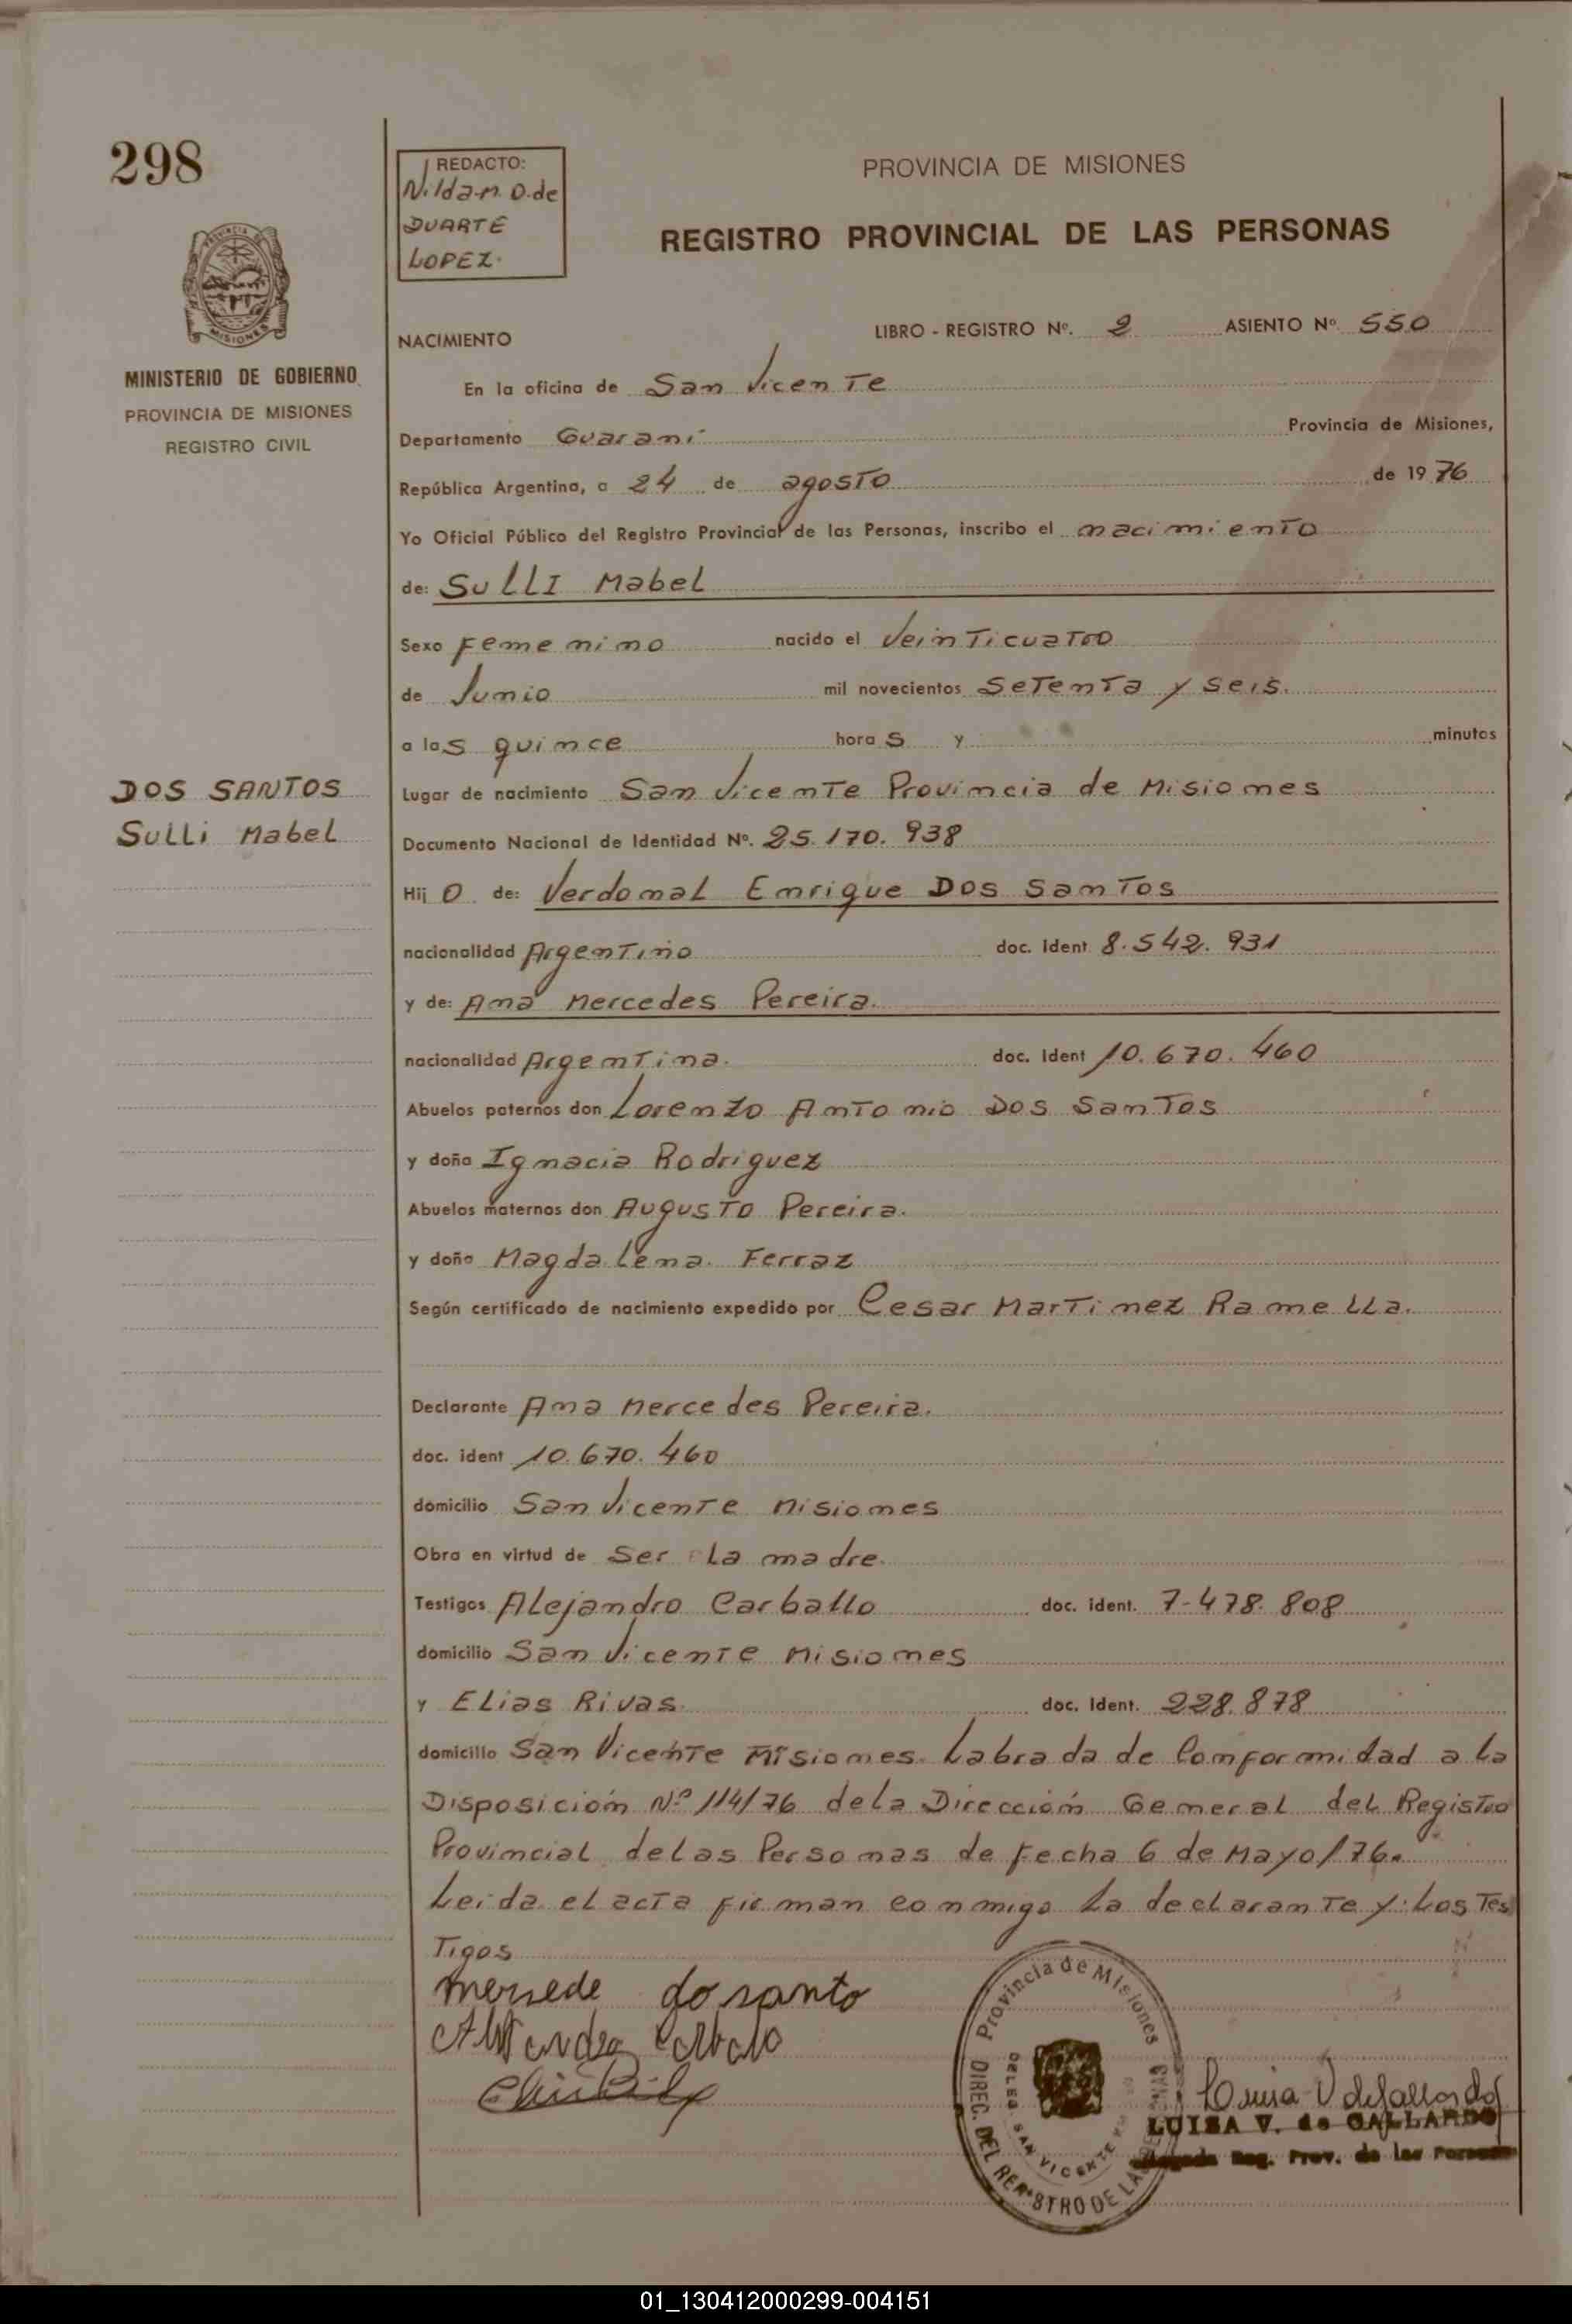 298
REDACTO:
Nilda M. O. de
DUARTE
LOPEZ.
PROVINCIA DE MISIONES
REGISTRO PROVINCIAL DE LAS PERSONAS
MINISTERIO DE GOBIERNO
PROVINCIA DE MISIONES
REGISTRO CIVIL
NACIMIENTO
LIBRO - REGISTRO Nº. 2 ASIENTO Nº 550
En la oficina de San Vicente
Departamento Guaraní Provincia de Misiones,
República Argentina, a 24 de agosto de 1976
Yo Oficial Público del Registro Provincial de las Personas, inscribo el nacimiento
de: SULLI Mabel
Sexo Femenino nacido el Veinticuatro
de Junio mil novecientos Setenta y Seis.
a las quince horas y minutos
DOS SANTOS
Sulli Mabel
Lugar de nacimiento San Vicente Provincia de Misiones
Documento Nacional de Identidad Nº. 25.170.938
Hij O de: Verdonal Enrique Dos Santos
nacionalidad Argentino doc. Ident 8.542.931
y de: Ana Mercedes Pereira.
nacionalidad Argentina. doc. Ident 10.670.460
Abuelos paternos don Lorenzo Antonio Dos Santos
y doña Ignacia Rodriguez
Abuelos maternos don Augusto Pereira.
y doña Magdalena Ferraz
Según certificado de nacimiento expedido por Cesar Martinez Ramella.
Declarante Ana Mercedes Pereira.
doc. ident 10.670.460
domicilio San Vicente Misiones
Obra en virtud de Ser La madre.
Testigos Alejandro Carballo doc. ident. 7-478.808
domicilio San Vicente Misiones
y Elias Rivas. doc. Ident. 228.878
domicilio San Vicente Misiones. Labrada de Conformidad a la
Disposición Nº 114/76 de la Dirección General del Registro
Provincial de las Personas de fecha 6 de Mayo/76.
Leida el acta firman conmigo La declarante y Los Tes
Tigos
mersede do santo
Provincia de Misiones
DIREC. DEL REGISTRO DE LAS
DELEG. SAN VICENTE
Luisa V de Gallardo
LUISA V. de GALLARDO
Reg. Prov. de las Personas
01_130412000299-004151